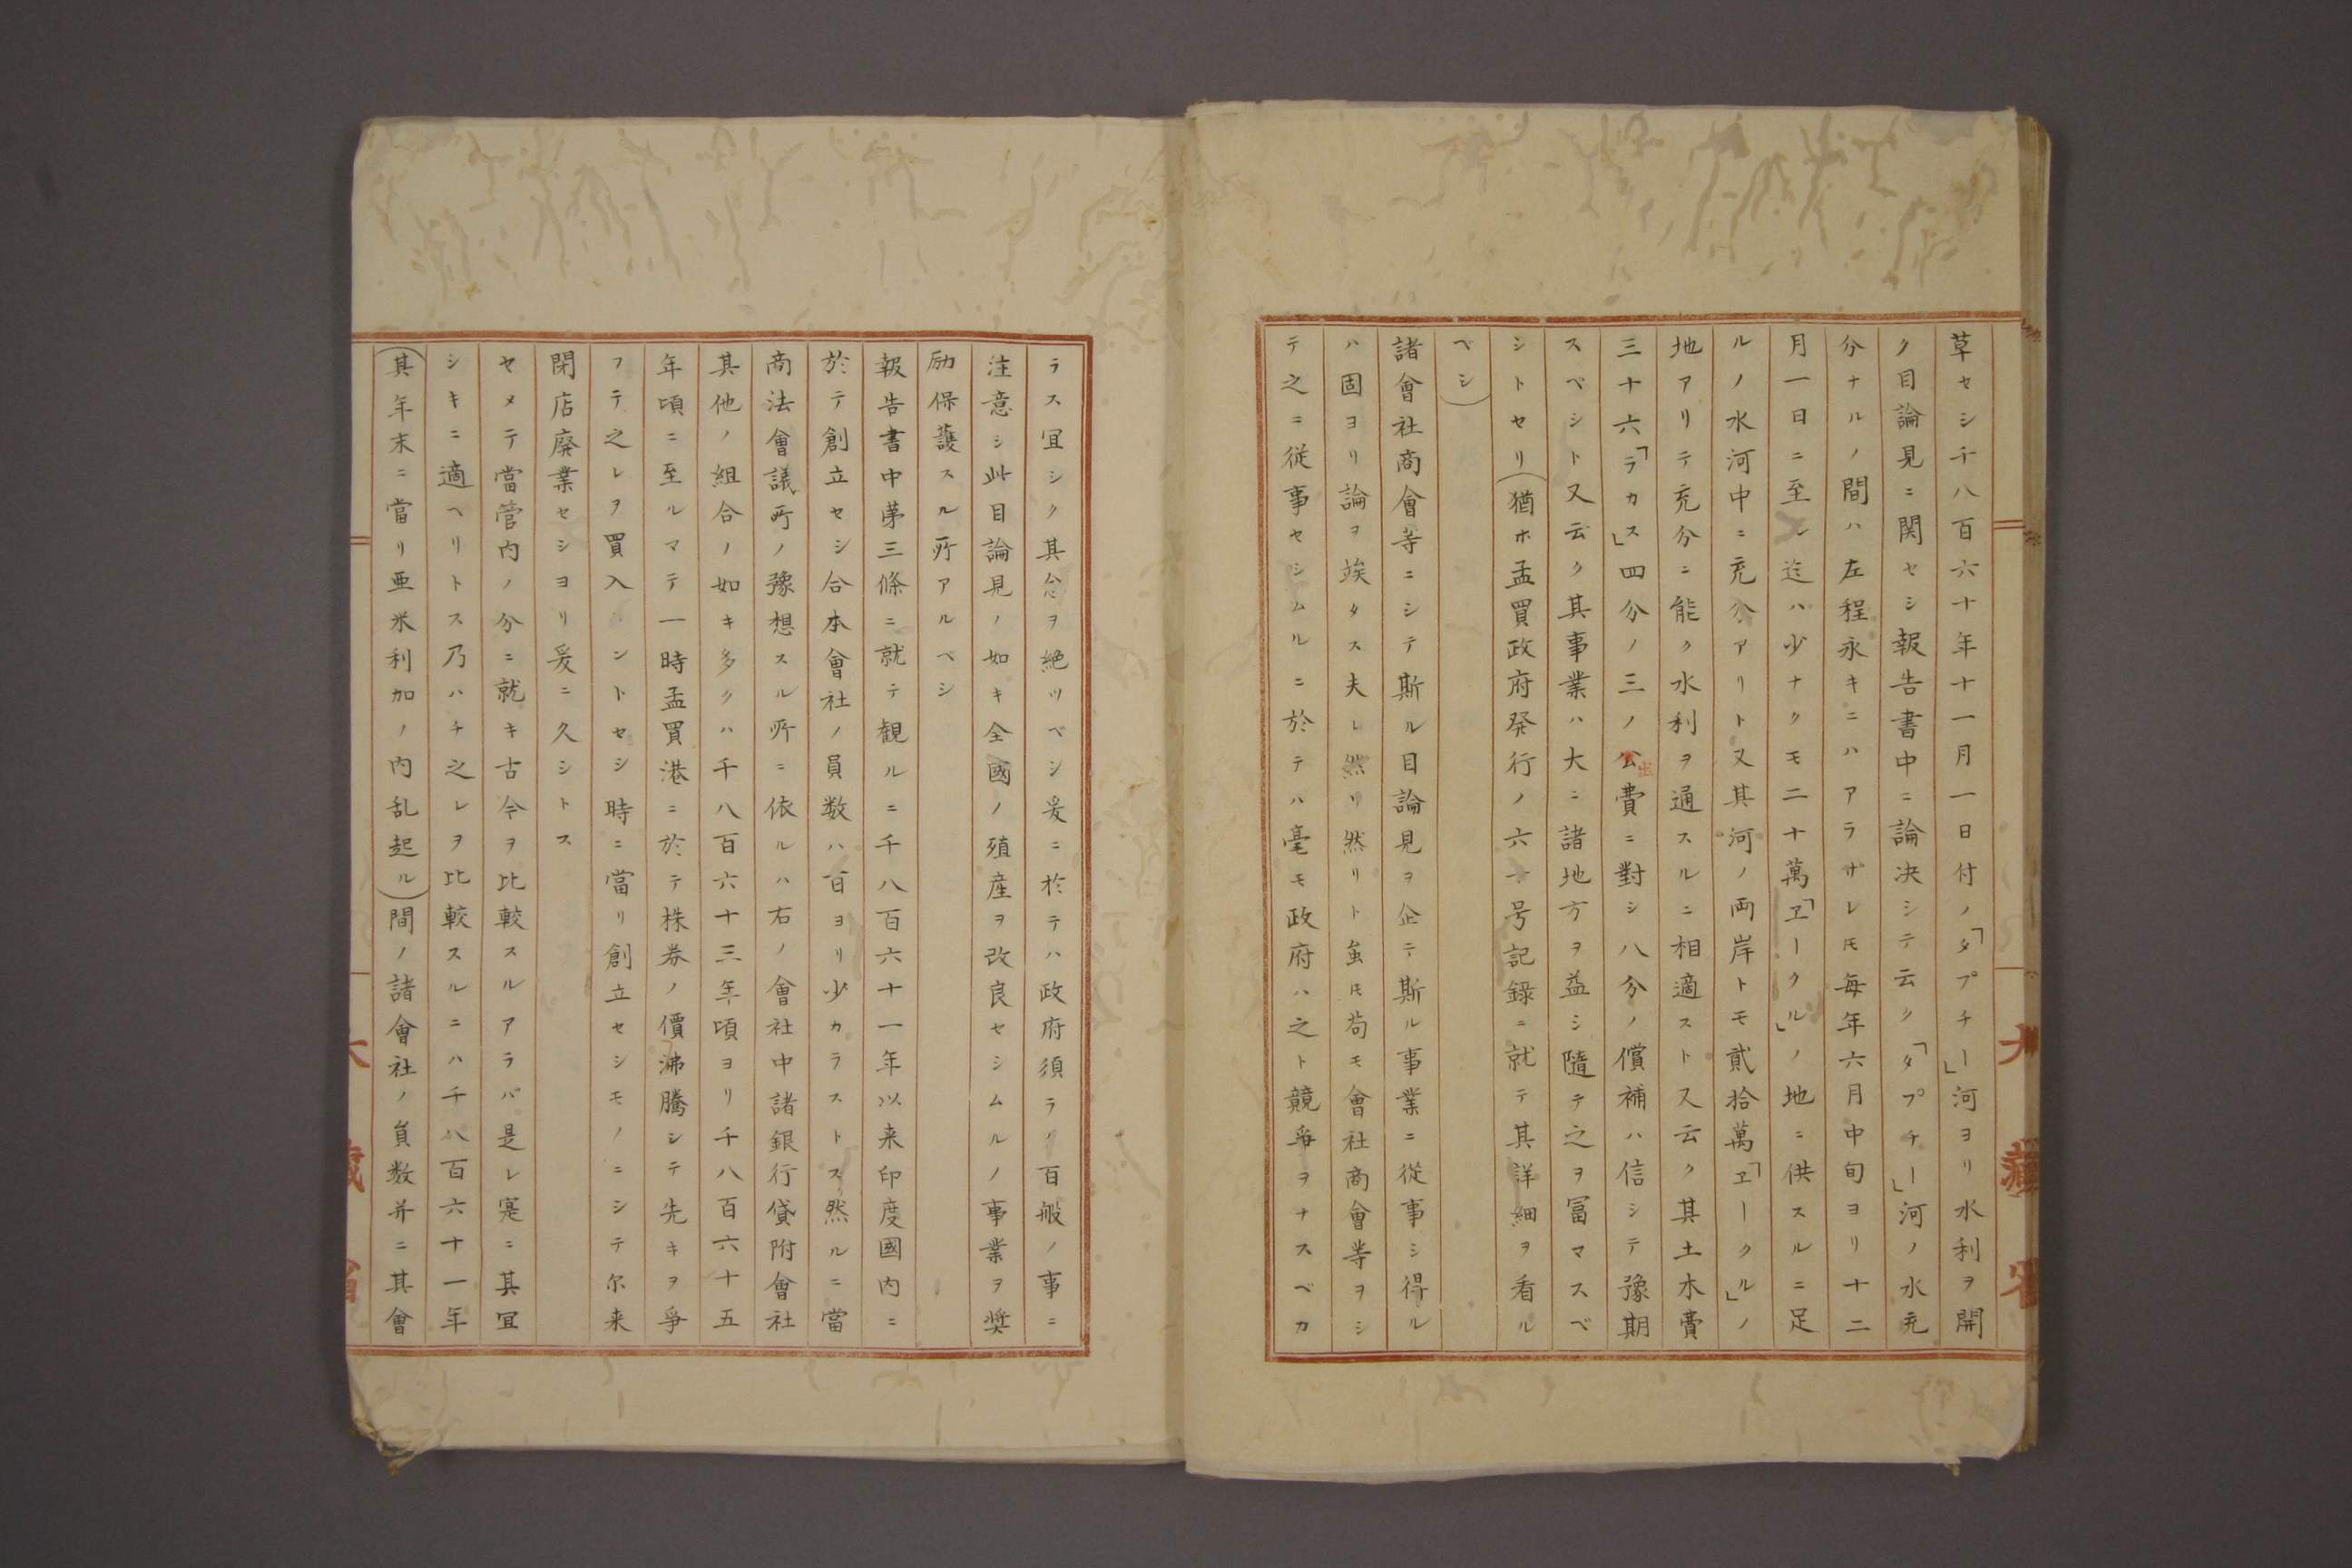 草セシ千八百六十年十一月一日付ノ「タプチー」河ヨリ水利ヲ開
ク目論見ニ関セシ報告書中ニ論決シテ云ク「タプチー」河ノ水充
分ナルノ間ハ左程永キニハアラザレ𪜈毎年六月中旬ヨリ十二
月一日ニ至ル迄ハ少ナクモ二十萬「ヱークル」ノ地ニ供スルニ足
ルノ水河中ニ充分アリト又其河ノ両岸トモ貳拾萬「ヱークル」ノ
地アリテ充分ニ能ク水利ヲ通スルニ相適ストス云ク其土木費
三十六「ラカス」四分ノ三ノ公出費ニ對シ八分ノ償補ハ信シテ豫期
スベシト又云ク其事業ハ大ニ諸地方ヲ益シ隨テ之ヲ冨マスベ
シトセリ(猶ホ孟買政府発行ノ六十号記録ニ就テ其詳細ヲ看ル
ベシ)
諸會社商會等ニシテ斯ル目論見ヲ企テ斯ル事業ニ從事シ得ル
ハ固ヨリ論ヲ竢タス夫レ然リ然リト虽𪜈苟モ會社商會等ヲシ
テ之ニ従事セシムルニ於テハ毫モ政府ハ之ト競爭ヲナスベカ
ラス冝シク其念ヲ絶ツベシ爰ニ於テハ政府須ラク百般ノ事ニ
注意シ此目論見ノ如キ全國ノ殖産ヲ改良セシムルノ事業ヲ奨
励保護スル所アルベシ
報告書中第三條ニ就テ観ルニ千八百六十一年以来印度國内ニ
於テ創立セシ合本會社ノ員数ハ百ヨリ少カラストス然ルニ當
商法會議所ノ豫想スル所ニ依ルハ右ノ會社中諸銀行貸附會社
其他ノ組合ノ如キ多クハ千八百六十三年頃ヨリ千八百六十五
年頃ニ至ルマテ一時孟買港ニ於テ株券ノ價沸騰シテ先キヲ爭
フテ之レヲ買入レントセシ時ニ當リ創立セシモノニシテ尓来
閉店廃業セシヨリ爰ニ久シトス
セメテ當管内ノ分ニ就キ古今ヲ比較スルアラバ是レ寔ニ其冝
シキニ適ヘリトス乃ハチ之レヲ比較スルニハ千八百六十一年
(其年末ニ當リ亜米利加ノ内乱起ル)間ノ諸會社ノ負数并ニ其會
大藏省